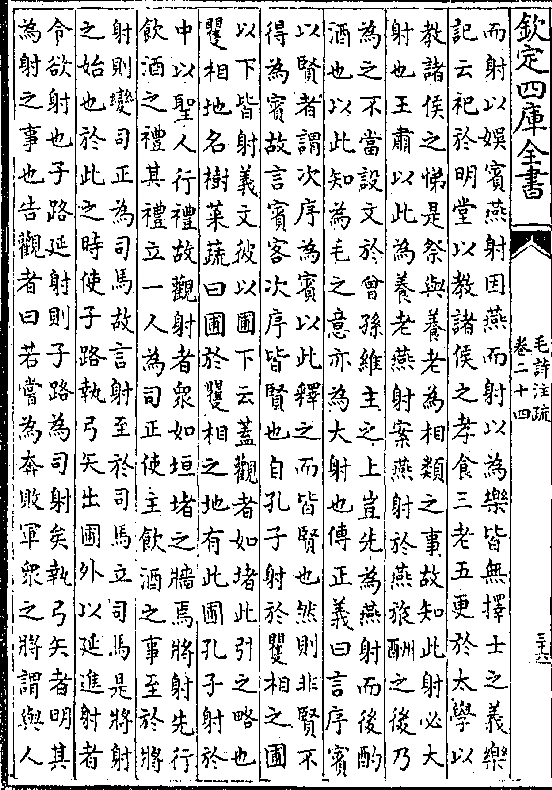 欽定四庫全書
毛詩注疏
卷二十四
三十六
而射以娛賓燕射因燕而射以為樂皆無擇士之義樂
記云祀於明堂以教諸侯之孝食三老五更於太學以
教諸侯之悌是祭與養老為相類之事故知此射必大
射也王肅以此為養老燕射案燕射於燕旅酬之後乃
為之不當設文於曾孫維主之上豈先為燕射而後酌
酒也以此知為毛之意亦為大射也傳正義曰言序賓
以賢者謂次序為賓以此釋之而皆賢也然則非賢不
得為賓故言賓客次序皆賢也自孔子射於矍相之圃
以下皆射義文彼以圃下云蓋觀者如堵此引之略也
矍相地名樹菜蔬曰圃於矍相之地有此圃孔子射於
中以聖人行禮故觀射者衆如垣堵之牆焉將射先行
飲酒之禮其禮立一人為司正使主飲酒之事至於將
射則變司正為司馬故言射至於司馬立司馬是將射
之始也於此之時使子路執弓矢出圃外以延進射者
令欲射也子路延射則子路為司射矣執弓矢者明其
為射之事也告觀者曰若嘗為奔敗軍衆之將謂與人